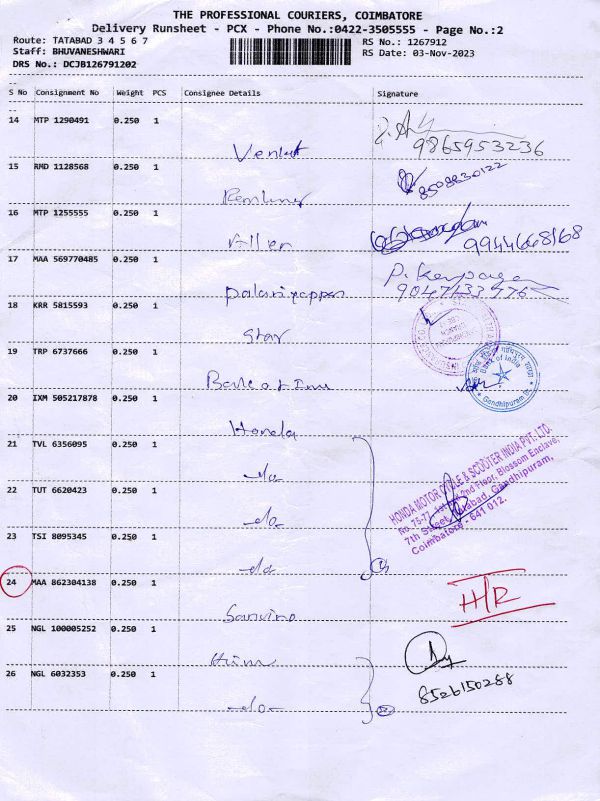 THE PROFESSIONAL COURIERS, COIMBATORE
Delivery Runsheet - PCX - Phone No.:0422-3505555 - Page No.:2
Route: TATABAD 3 4 5 6 7
RS No.: 1267912
Staff: BHUVANESHWARI
RS Date: 03-Nov-2023
DRS No.: DCJB126791202
S No Consignment No Weight PCS Consignee Details Signature
14 MTP 1290491 0.250 1
9865953236
Venkat
15 RMD 1128568 0.250 1
8508830122
16 MTP 1255555 0.250 1
9944668168
Allen
17 MAA 569770485 0.250 1
Palaniyappan
18 KRR 5815593 0.250 1
Star
19 TRP 6737666 0.250 1
Bank of India
Gandhipuram Br.
Bank of Inu
20 IXM 505217878 0.250 1
Honda
21 TVL 6356095 0.250 1
-do-
HONDA MOTORCYCLE & SCOOTER INDIA PVT. LTD.
No. 75-77, 1st & 2nd Floor, Blossom Enclave,
7th Street, Tatabad, Gandhipuram,
Coimbatore - 641 012.
22 TUT 6620423 0.250 1
-do-
23 TSI 8095345 0.250 1
-do
24 MAA 862304138 0.250 1
25 NGL 100005252 0.250 1
8526150288
26 NGL 6032353 0.250 1
-do-